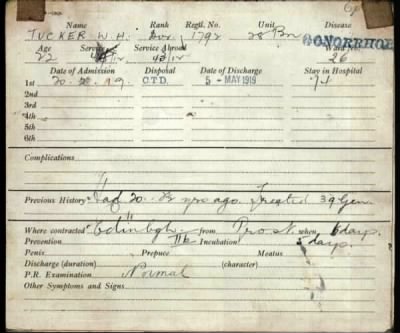 Name Rank Regtl. No. Unit Disease
TUCKER W. H. Dvr. 1792 28 Bn GONORRHOE
Age Service Service Abroad Ward No.
22 /12 /12 26
Date of Admission Disposal Date of Discharge Stay in Hospital
1st 20. 2. 19. C.T.D. 5 - MAY 1919 74
2nd
3rd
4th
5th
6th
Complications
Previous History Had 20. yrs ago. Treated 39 Gen.
Where contracted Edinbgh. from Pros. when 6 days.
Prevention Incubation 5 days.
Penis Prepuce Meatus
Discharge (duration) (character)
P.R. Examination Normal
Other Symptoms and Signs